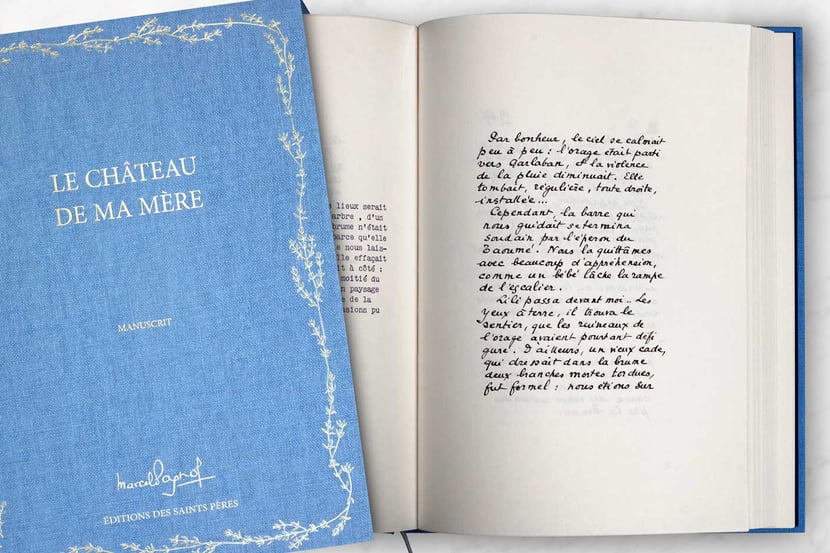 LE CHÂTEAU
DE MA MÈRE
MANUSCRIT
Marcel Pagnol
ÉDITIONS DES SAINTS PÈRES
lieux serait
arbre , d'un
brume n'était
parce qu'elle
e nous lais-
lle effaçait
it à côté :
moitié du
n paysage
e de la
sions pu
Par bonheur, le ciel se calmait
peu à peu : l'orage était parti
vers Garlaban, et la violence
de la pluie diminuait. Elle
tombait, régulière, toute droite,
installée...
Cependant, la barre qui
nous guidait se termina
soudain par l'éperon du
Taoumé. Nous la quittâmes
avec beaucoup d'appréhension,
comme un bébé lâche la rampe
de l'escalier.
Lili passa devant moi.. Les
yeux à terre, il trouva le
sentier, que les ruisseaux de
l'orage avaient pourtant défi
guré. D'ailleurs, un vieux cade,
qui dressait dans la brume
deux branches mortes tordues,
fut formel : nous étions sur